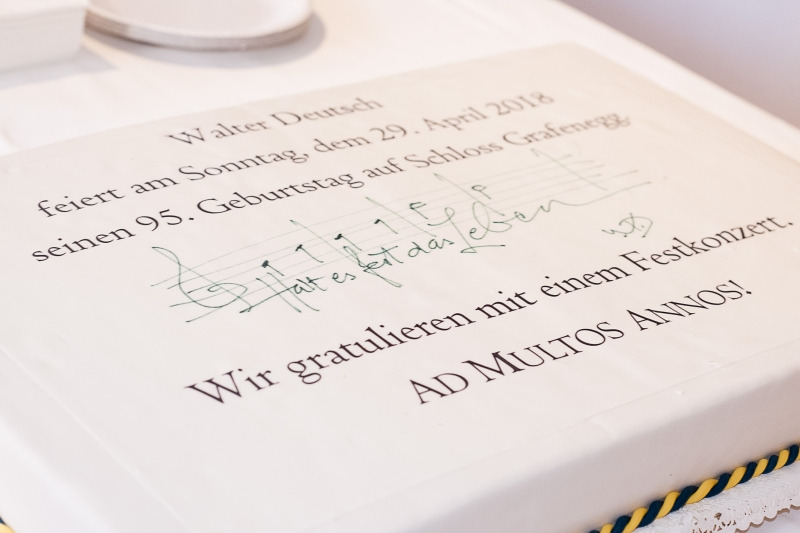 Walter Deutsch
feiert am Sonntag, dem 29. April 2018
seinen 95. Geburtstag auf Schloss Grafenegg.
Halt es fest das Leben
WD
Wir gratulieren mit einem Festkonzert.
AD MULTOS ANNOS!